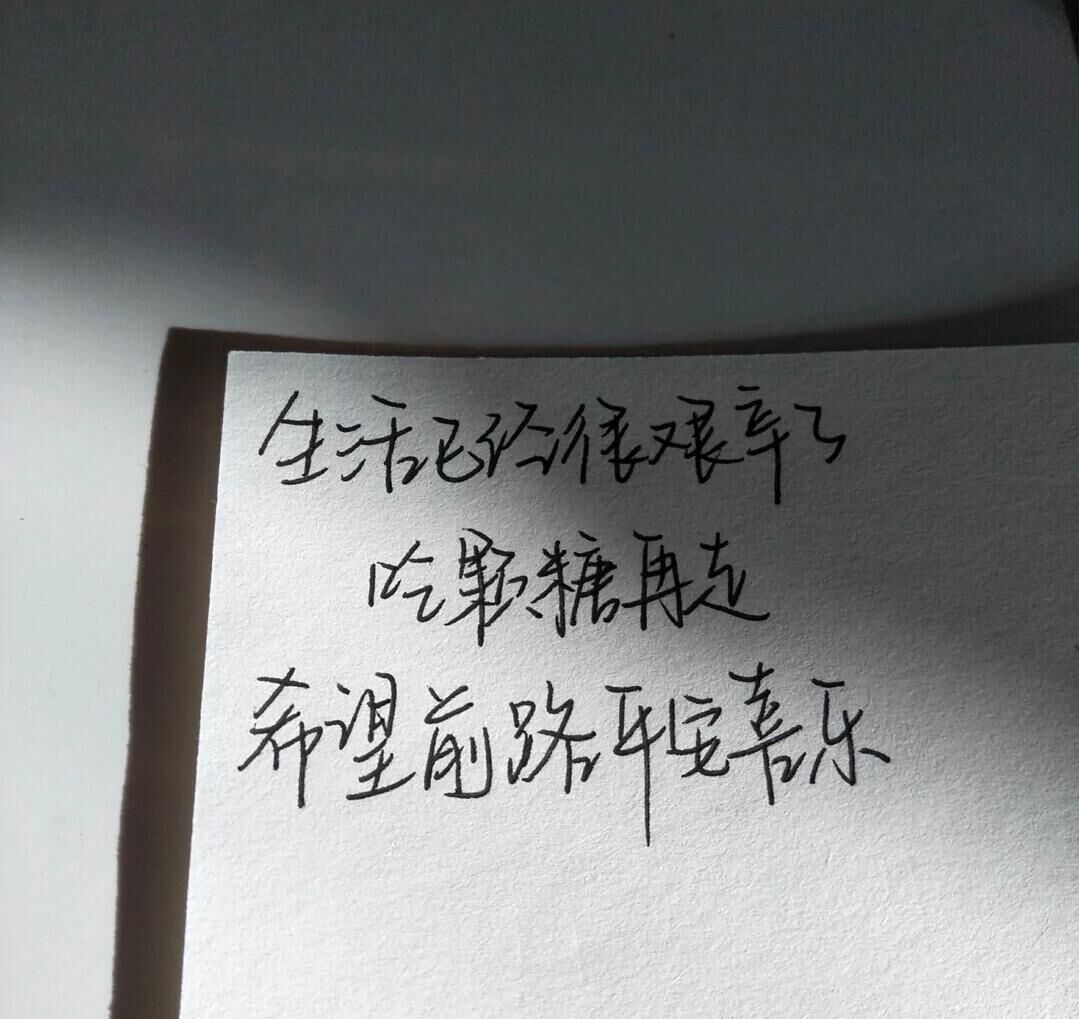 生活已经很艰辛了
吃颗糖再走
希望前路平安喜乐